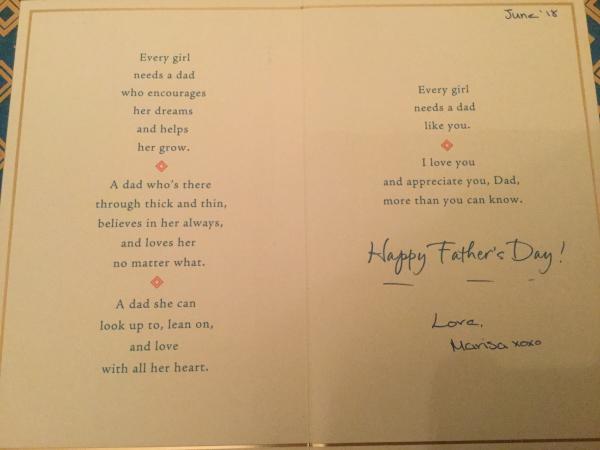 Every girl
needs a dad
who encourages
her dreams
and helps
her grow.
A dad who's there
through thick and thin,
believes in her always,
and loves her
no matter what.
A dad she can
look up to, lean on,
and love
with all her heart.
June '18
Every girl
needs a dad
like you.
I love you
and appreciate you, Dad,
more than you can know.
Happy Father's Day!
Love,
Marisa xoxo